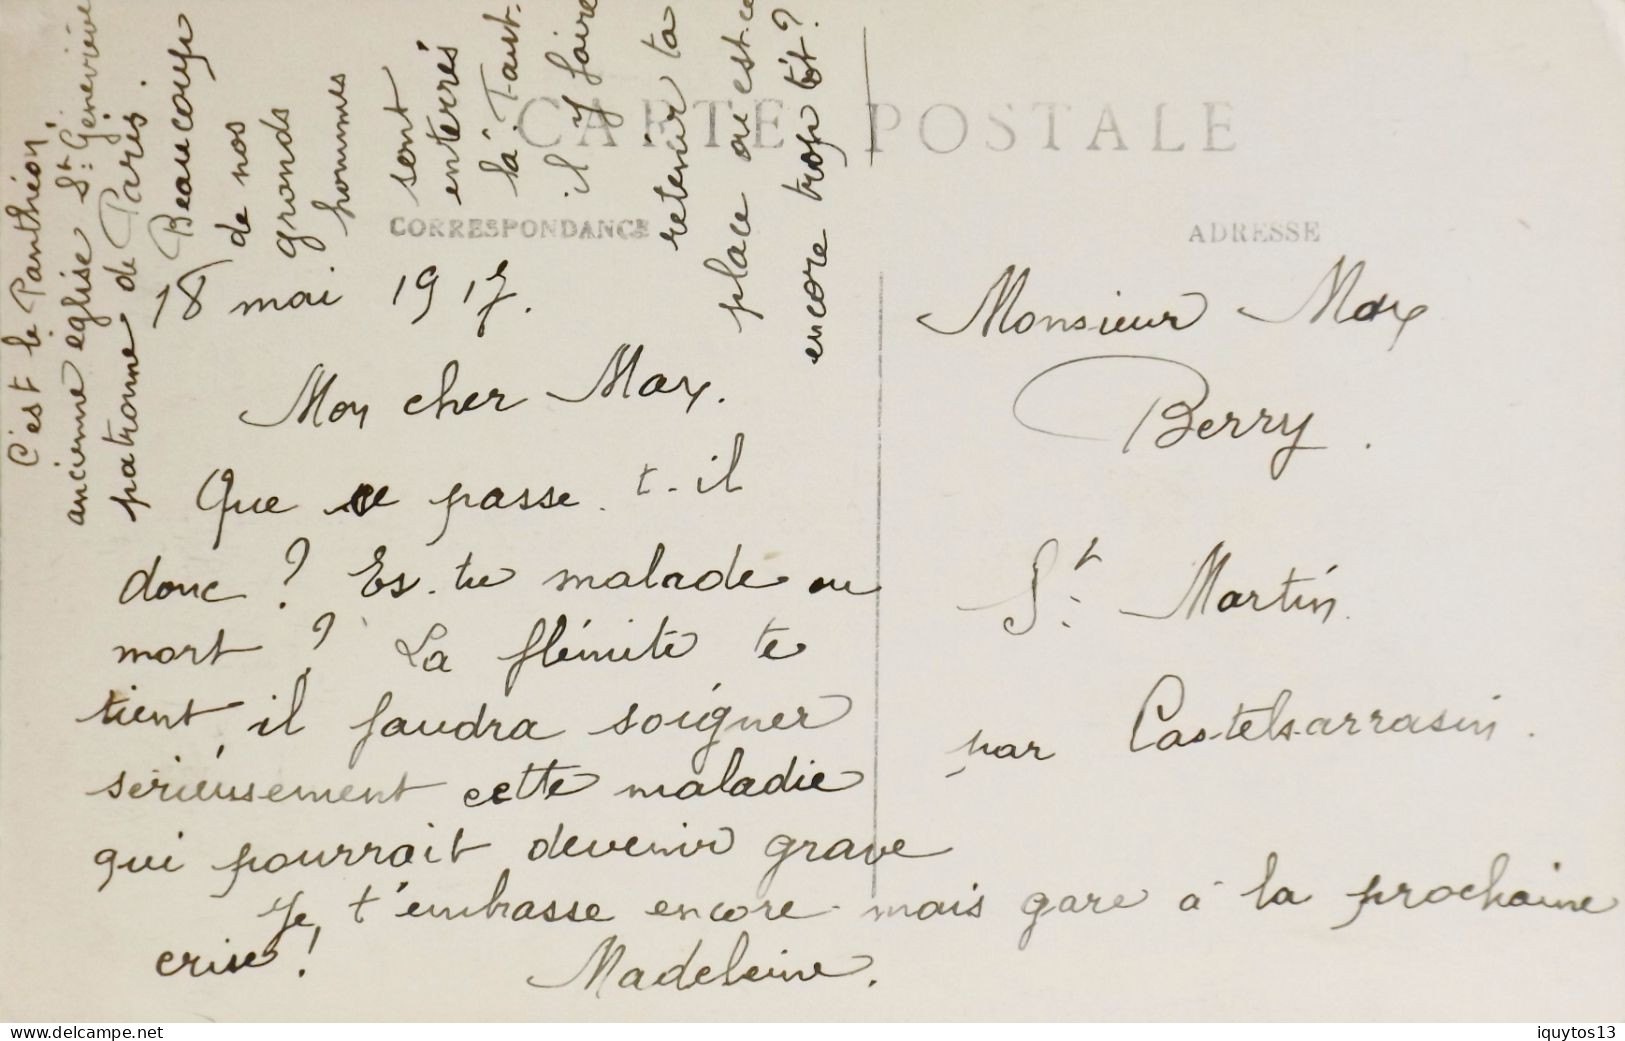 C'est le Panthéon,
ancienne église St: Geneviève
patronne de Paris.
Beaucoup
de nos
grands
hommes
sont
enterrés
là. Faut-
il y faire
retenir ta
place ou est-ce
encore trop tôt?
CARTE POSTALE
CORRESPONDANCE
18 mai 1917.
Mon cher Max.
Que se passe. t-il
donc? Es-tu malade ou
mort? La flémite te
tient, il faudra soigner
sérieusement cette maladie
qui pourrait devenir grave
Je t'embrasse encore mais gare à la prochaine
crise!
Madeleine.
ADRESSE
Monsieur Max
Berry.
St: Martin
par Castelsarrasin.
www.delcampe.net
iquytos13